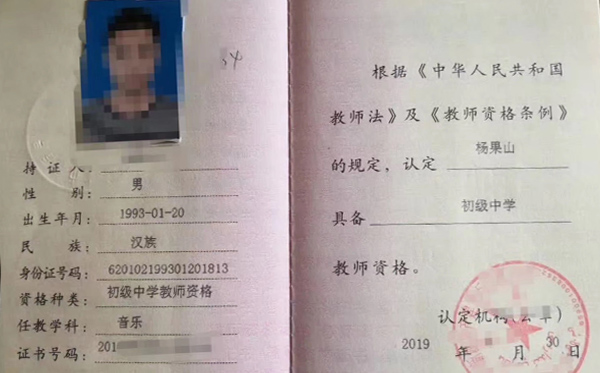 34
持证人:
性别: 男
出生年月: 1993-01-20
民族: 汉族
身份证号码: 620102199301201813
资格种类: 初级中学教师资格
任教学科: 音乐
证书号码: 201
根据《中华人民共和国
教师法》及《教师资格条例》
的规定，认定 杨果山
具备 初级中学
教师资格。
认定机构(公章)
2019 年 月 30 日